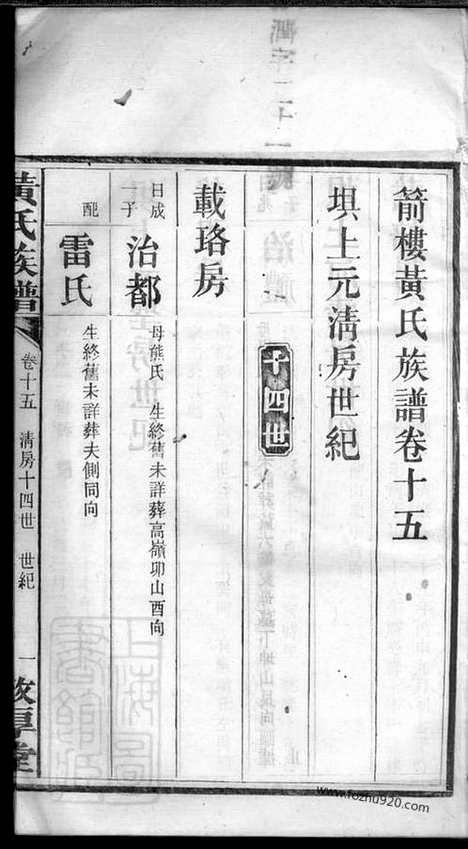 箭樓黃氏族譜卷十五
垻上元清房世紀
十四世
載珞房
日成
一子
治都
母熊氏 生終舊未詳葬高嶺卯山酉向
配
雷氏
生終舊未詳葬夫側同向
黃氏族譜
卷十五 清房十四世 世紀
一
敦厚堂
www.fozhu920.com